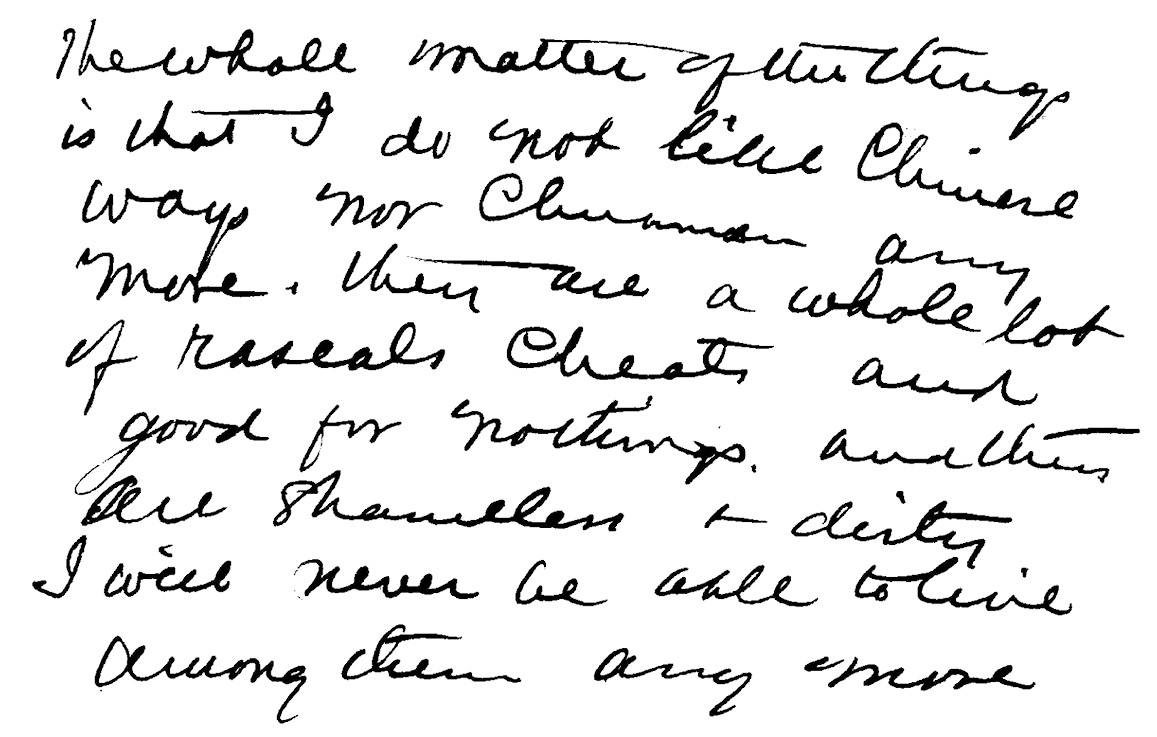 The whole matter of the things
is that I do not like Chinese
ways nor Chinaman any
more. they are a whole lot
of rascals Cheats and
good for nothings. and they
are shameless + dirty
I will never be able to live
among them any more